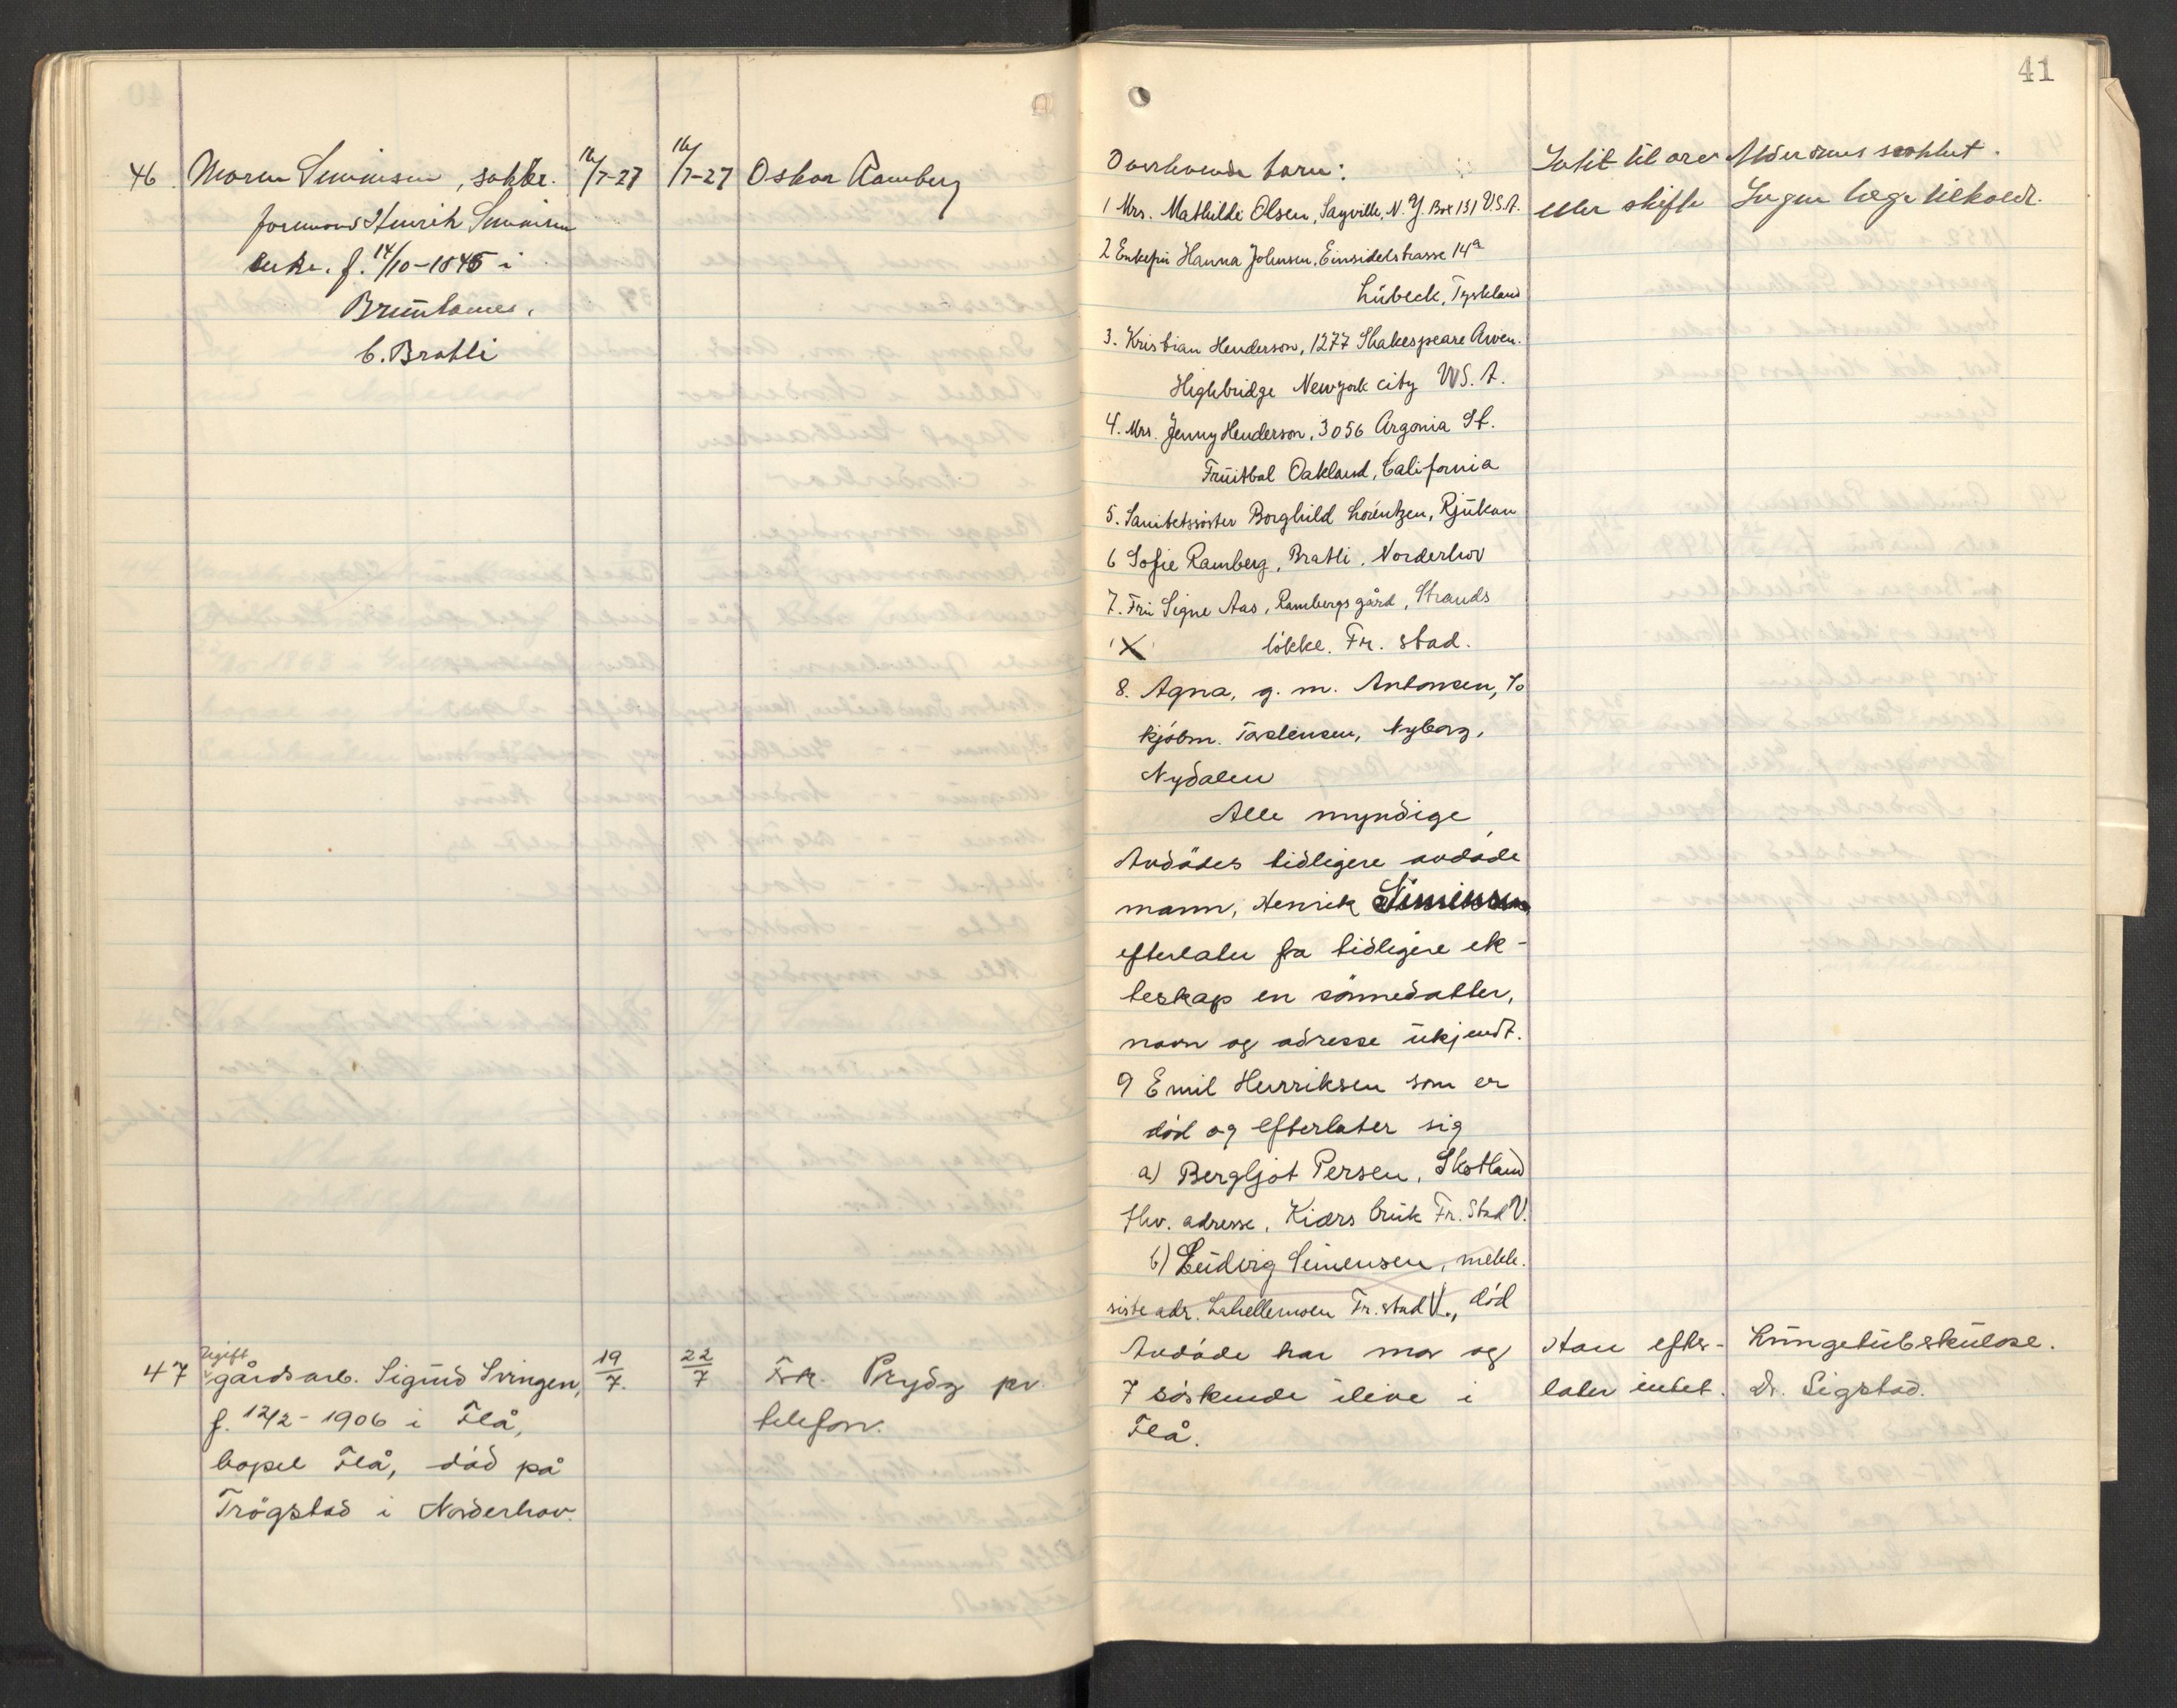 41
46. Maren Simensen, sakfør.
formand Henrik Simensen
enke. f. 14/10-1845 i
b. Bratli
16/7-27
16/7-27
Oskar Ramberg
Overlevende barn:
1 Mrs. Mathilde Olsen, Sayville, N. Y. Box 131 U.S.A.
2 Enkefru Hanna Johnsen, Einsidelstrasse 14a
Lübeck, Tyskland
3. Kristian Henderson, 1277 Shakespeare Aven.
Highbridge Newyork city U.S.A.
4. Mrs. Jenny Henderson, 3056 Argonia St.
Fruitval Oakland, California
5. Sanitetssöster Borghild Lorentzen, Rjukan
6 Sofie Ramberg, Bratli, Norderhov
7. Fru Signe Aas, Rambergs gård, Strands
X lökke. Fr. stad.
8. Agna, g. m. Antonsen, %
kjöbm. Torstensen, Nyborg,
Nydalen
Alle myndige
Avdödes tidligere avdöde
mann, Henrik Simensen
efterlater fra tidligere ek-
teskap en sönnedatter,
navn og adresse ukjendt.
9 Emil Henriksen som er
död og efterlater sig
a) Bergljot Persen, Skotland
f. hv. adresse, Kiærs bruk Fr. Stad V.
b) Ludvig Simensen, mekk.
siste adr. Lahellemoen Fr. stad V., död
Intet til arv
eller skifte
Alderdoms svakhet.
Ingen læge tilkaldt.
47 Ugift
gårdsarb. Sigurd Svingen,
f. 12/2-1906 i Flå,
bopel Flå, död på
Trögstad i Norderhov.
19/7.
22/7
Frk. Prydz pr.
telefon.
Avdöde har mor og
7 söskende ilive i
Flå.
Han efter-
later intet.
Lungetuberkulose.
Dr. Sigstad.